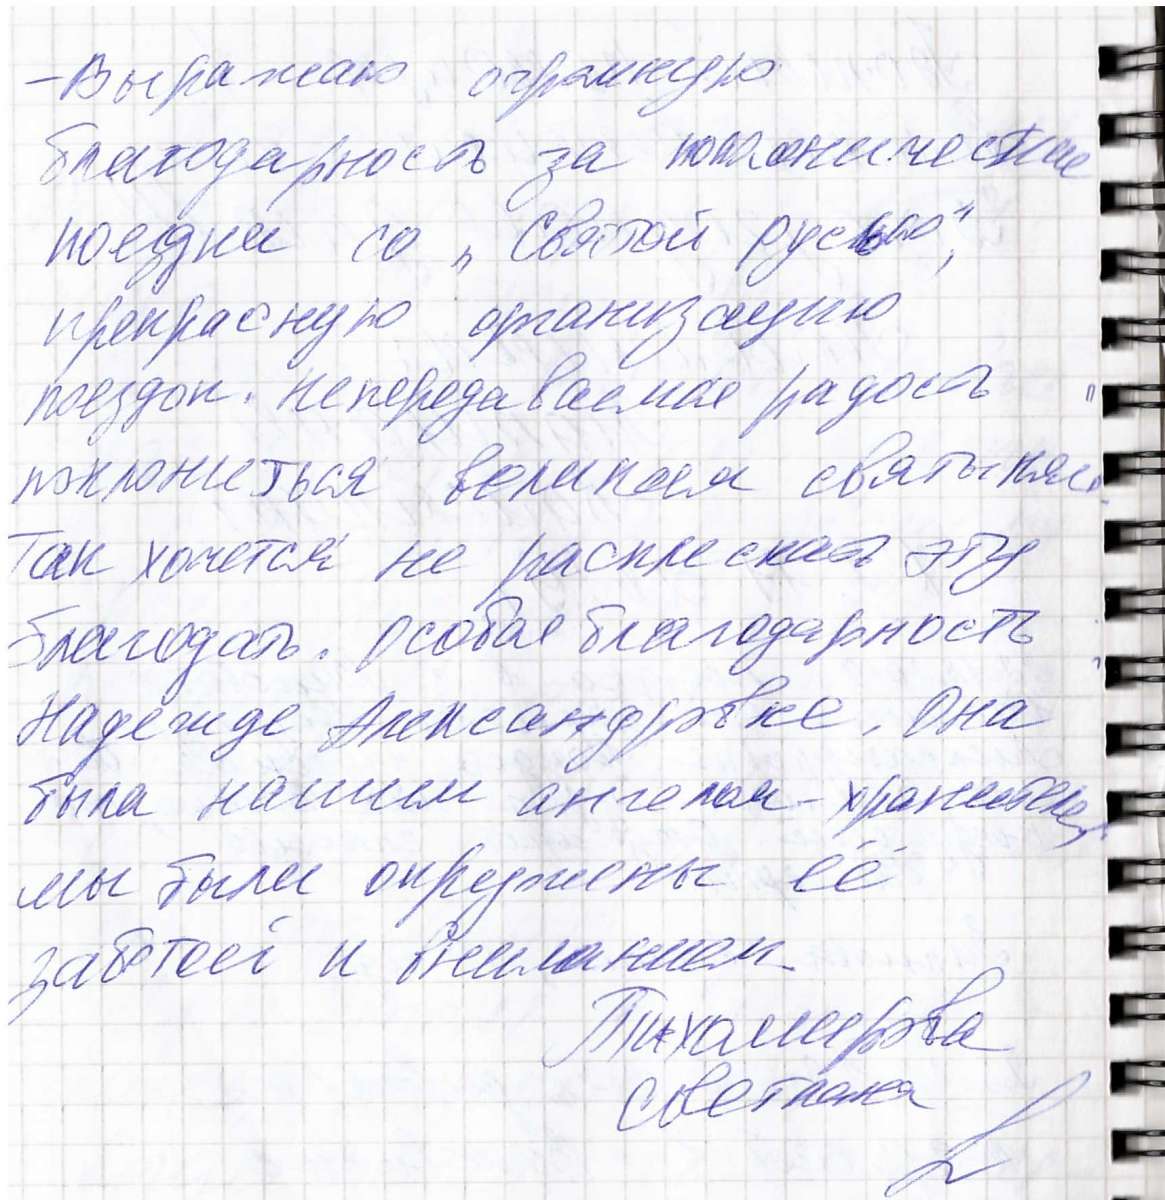 - Выражаю огромную
благодарность за паломнические
поездки со „Святой Русью",
прекрасную организацию
поездок. Непередаваемая радость
поклониться великим святыням.
Так хочется не расплескать эту
благодать. Особая благодарность
Надежде Александровне. Она
была нашим ангелом-хранителем,
мы были окружены её
заботой и вниманием.
Тихомирова
Светлана